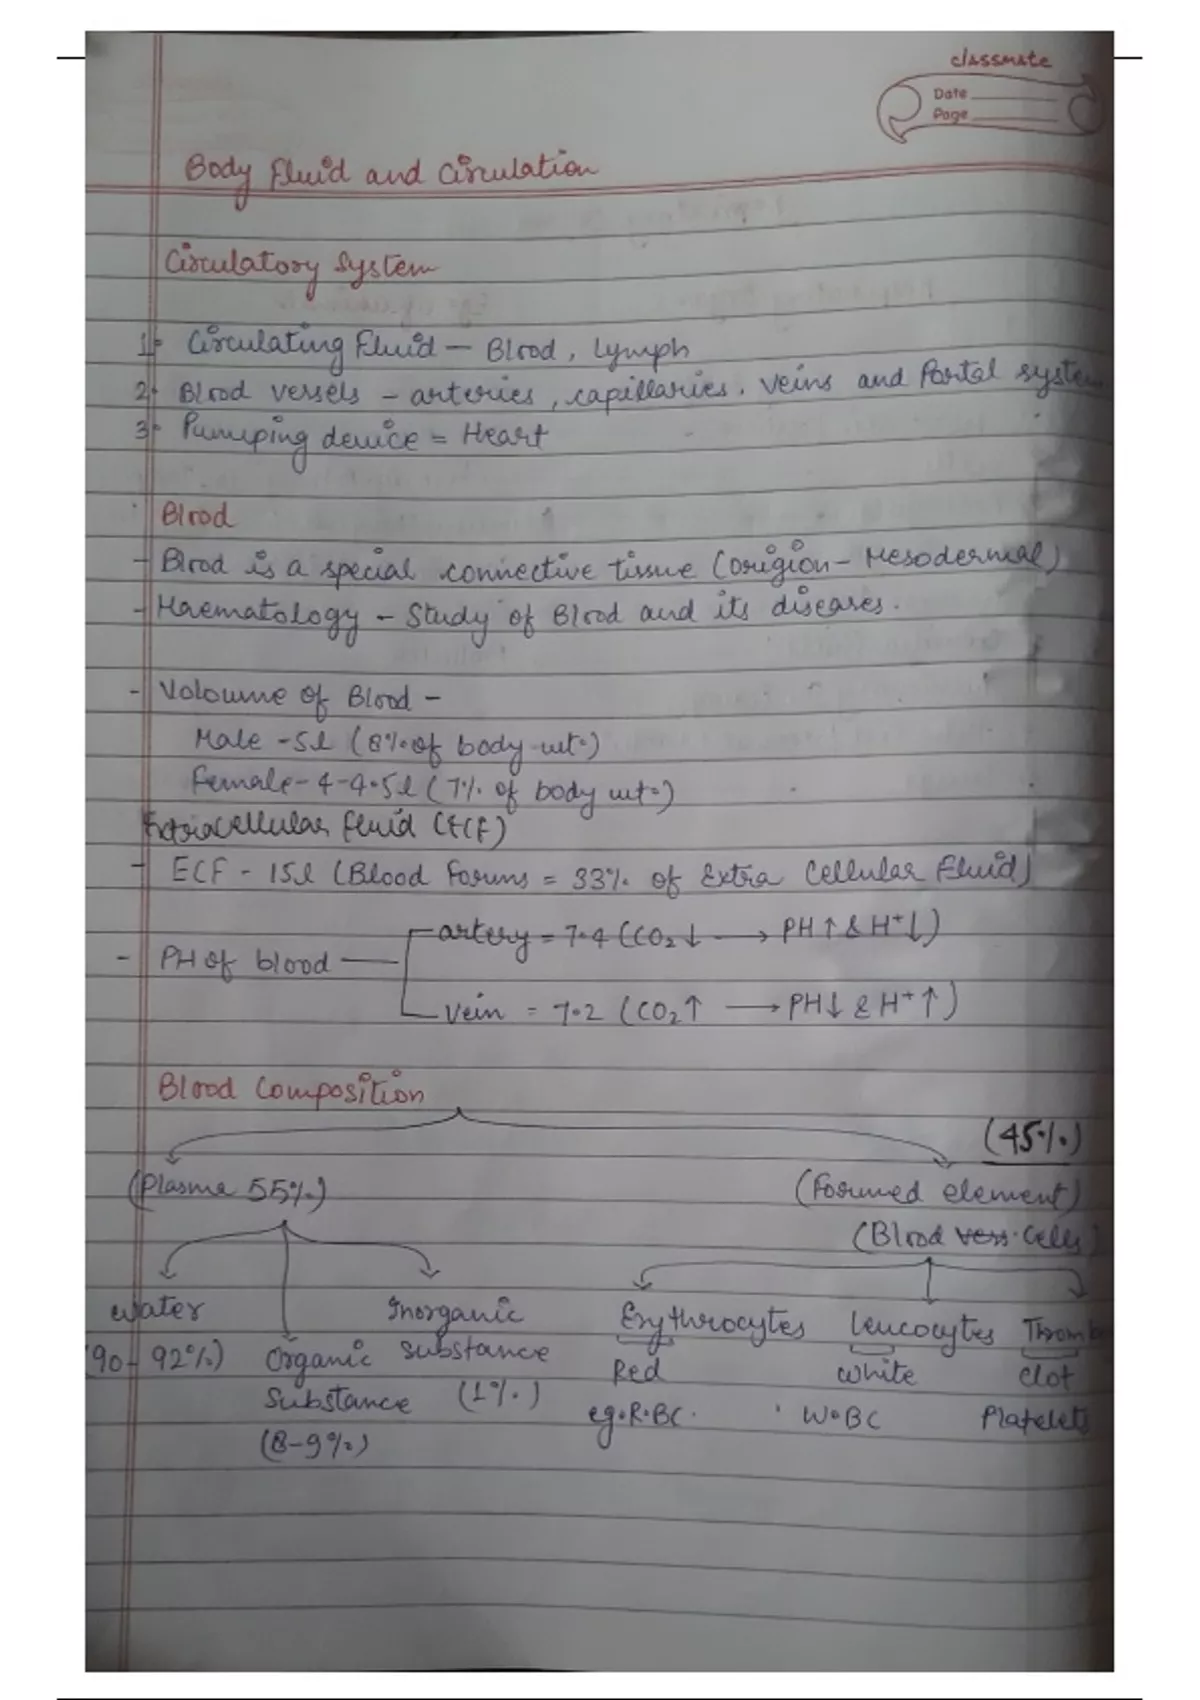 classmate
Date
Page
Body Fluid and Circulation
Circulatory System
1- Circulating Fluid - Blood, Lymph
2- Blood vessels - arteries, capillaries. Veins and Portal system
3- Pumping device = Heart
Blood
- Blood is a special connective tissue (origion- Mesodermal)
- Haematology - Study of Blood and its diseases.
- Voloume of Blood -
Male - 5l (8% of body wt.)
Female - 4-4.5l (7% of body wt.)
Extracellular fluid (ECF)
- ECF - 15l (Blood Forms = 33% of Extra Cellular Fluid)
artery = 7.4 (CO₂↓ → PH↑ & H⁺↓)
- PH of blood
Vein = 7.2 (CO₂↑ → PH↓ & H⁺↑)
Blood Composition
(45%)
(Plasma 55%) (Formed element)
(Blood vess. Cells)
water Inorganic Erythrocytes Leucocytes Thrombo
(90-92%) Organic substance Red white clot
Substance (1%) eg.R.BC. W.BC Platelets
(8-9%)